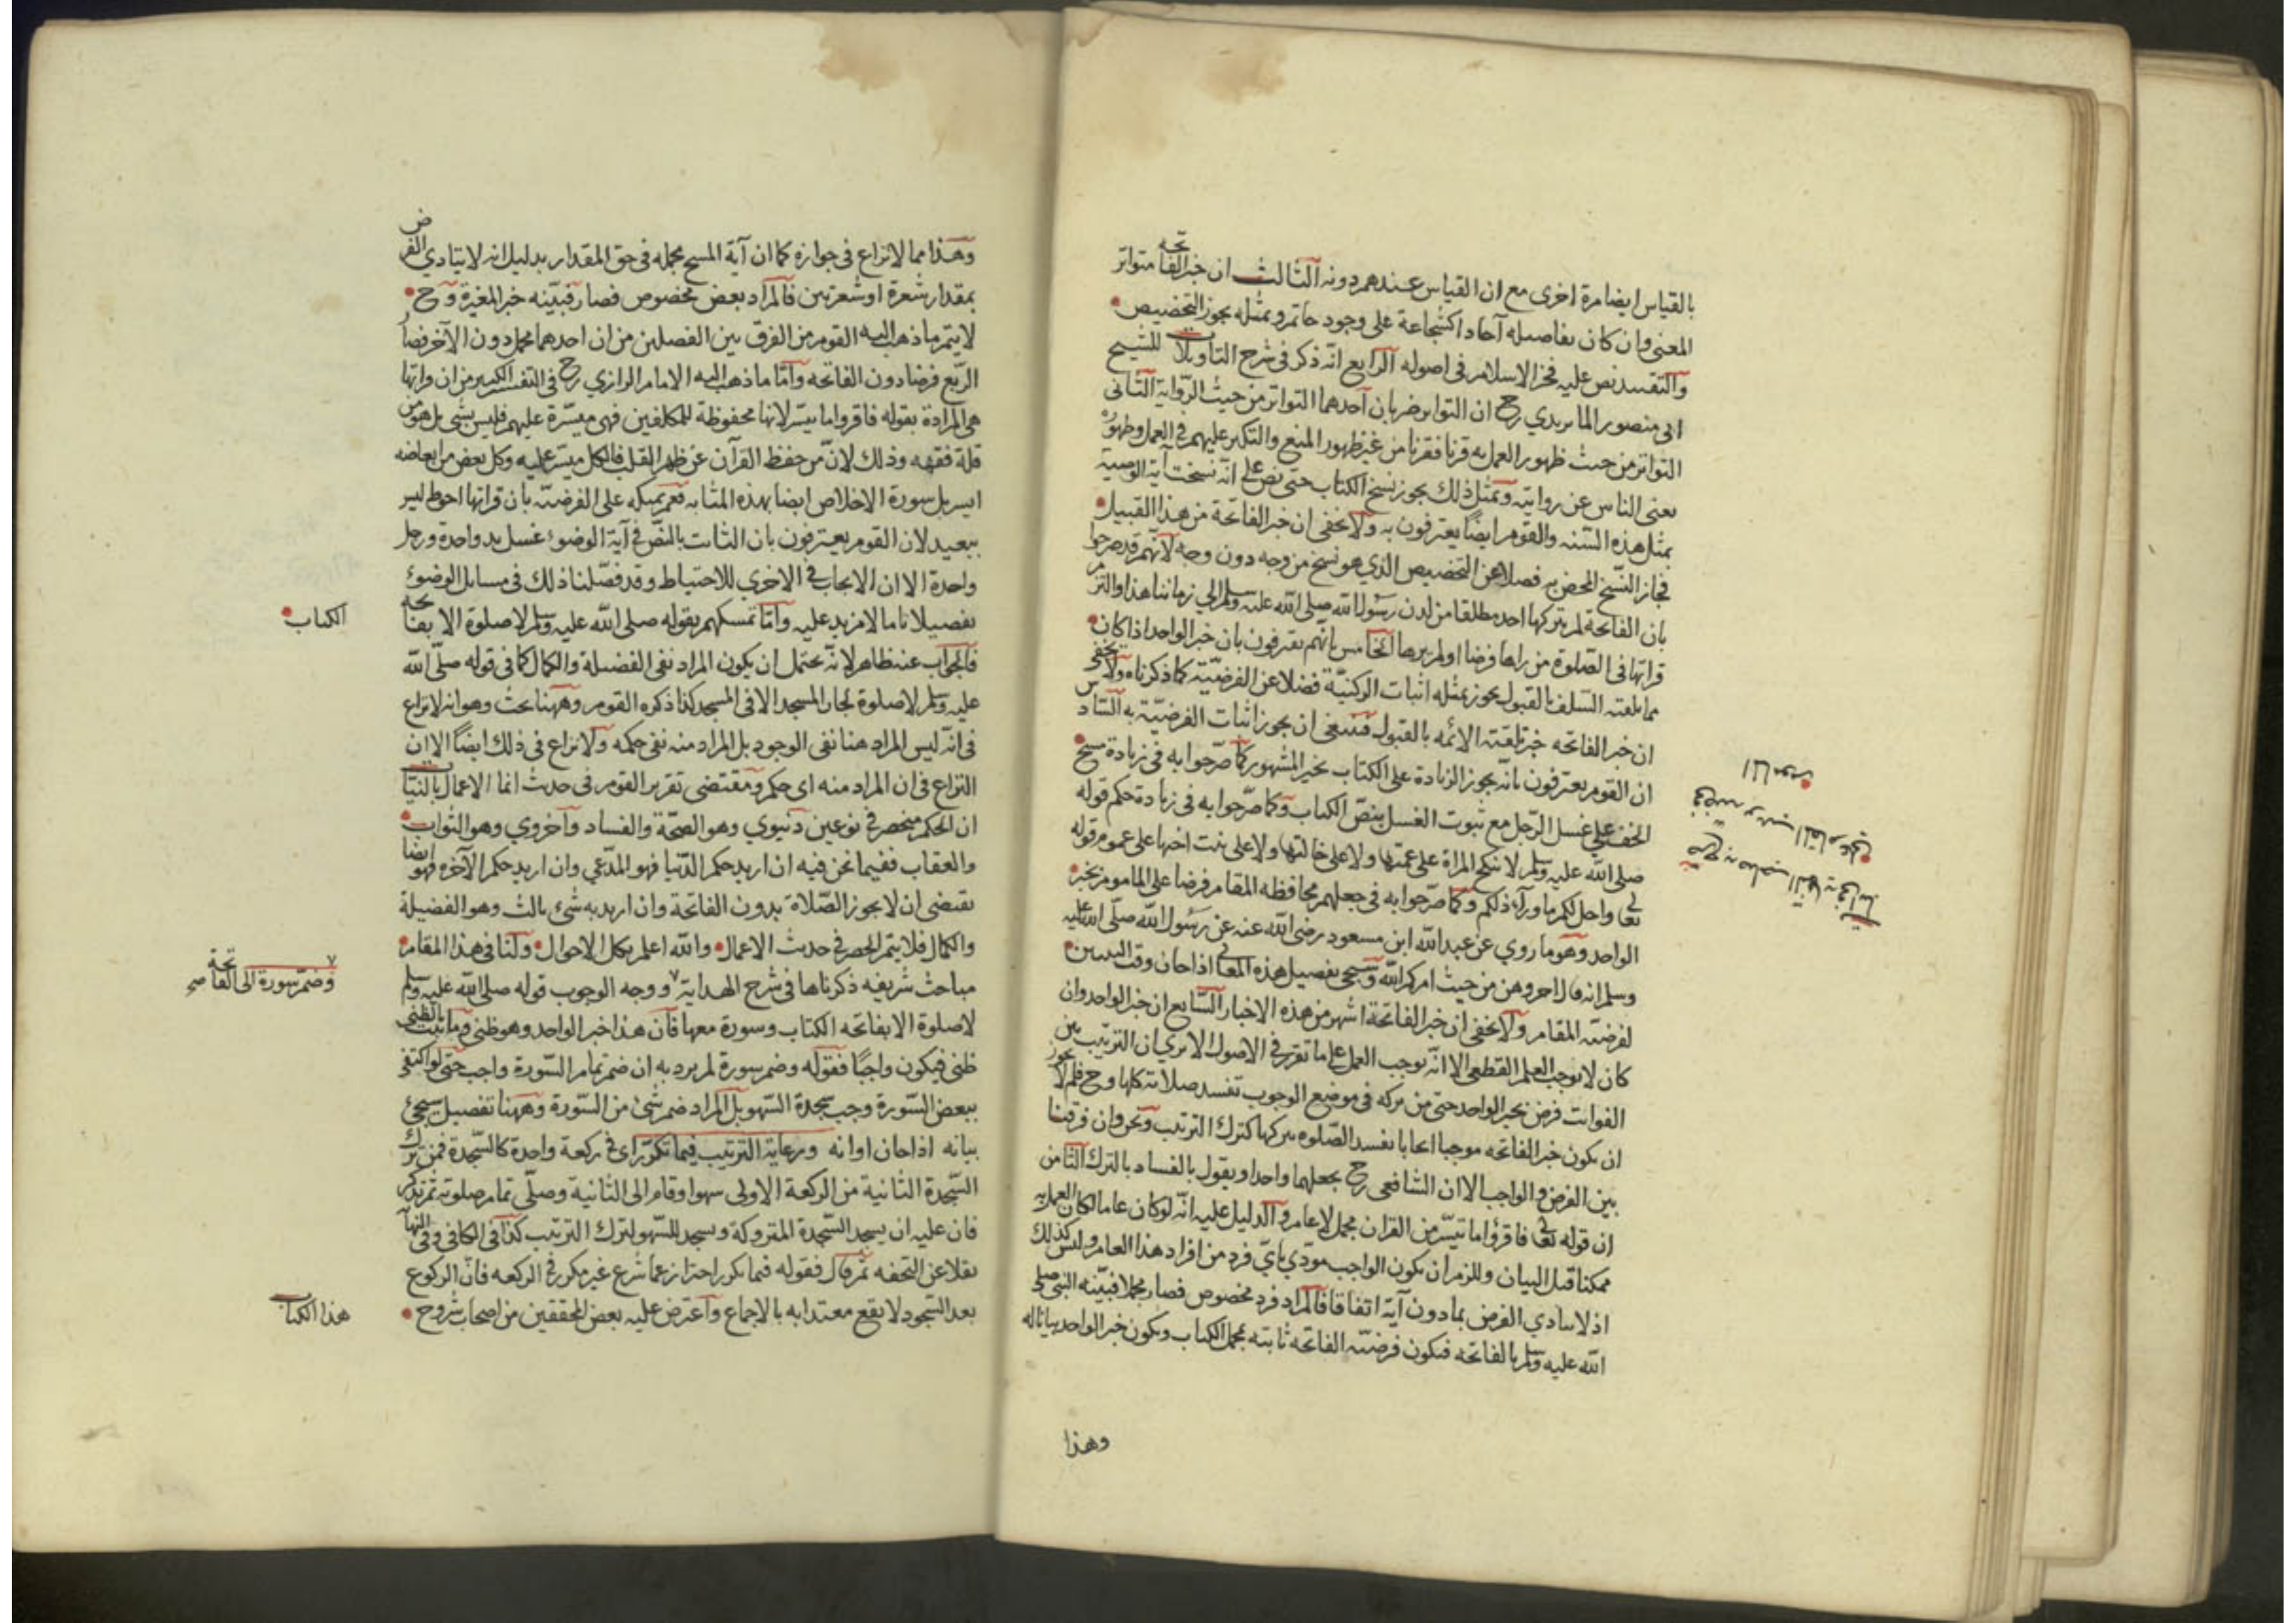 بالقياس ايضا مرة اخرى مع ان القياس عندهم دونه الثالث ان خبر الفاتحه متواتر
المعنى وان كان تفاصيله آحادا كشجاعة على وجود حاتم وبمثله يجوز التخصيص
والتقييد نص عليه فخر الاسلام في اصوله الرابع انه ذكر في شرح التاويلات للشيخ
ابى منصور الماتريدي رح ان التواتر ضربان احدهما التواتر من حيث الرواية الثانى
التواتر من حيث ظهور العمل به قرنا فقرنا من غير ظهور المنع والنكير عليهم في العمل وظهوره
يعنى الناس عن روايته وبمثل ذلك يجوز نسخ الكتاب حتى نص على انه نسخت آية الوصية
بمثل هذه السنه والقوم ايضا يعترفون به ولا يخفى ان خبر الفاتحة من هذا القبيل
فجاز النسخ المحض به فضلا عن التخصيص الذي هو نسخ من وجه دون وجه لانهم قد صرحوا
بان الفاتحة لم يتركها احد مطلقا من لدن رسول الله صلى الله عليه وسلم الى زماننا هذا والتزم
قراتها في الصلوة من راها فرضا او لم يرها الخامس بانهم يعترفون بان خبر الواحد اذا كان
مما تلقته السلف بالقبول يجوز بمثله اثبات الركنية فضلا عن الفرضية كما ذكرناه ولا يخفى
ان خبر الفاتحه خبر تلقته الائمه بالقبول فينبغى ان يجوز اثبات الفرضية به السادس
ان القوم يعترفون بانه يجوز الزيادة على الكتاب بخبر المشهور كما صرحوا به في زيادة مسح
الخف على غسل الرجل مع ثبوت الغسل بنص الكتاب وكما صرحوا به في زيادة حكم قوله
صلى الله عليه وسلم لا تنكح المراة على عمتها ولا على خالتها ولا على بنت اختها على عموم قوله
تعالى واحل لكم ما ورآء ذلكم وكما صرحوا به في جعلهم محافظه المقام فرضا على الماموم بخبر
الواحد وهو ما روي عن عبد الله ابن مسعود رضى الله عنه عن رسول الله صلى الله عليه
وسلم انه قال اخروهن من حيث اخرهن الله وسيجى تفصيل هذه المعانى اذا حان وقت التبيين
لفرضية المقام ولا يخفى ان خبر الفاتحة اشهر من هذه الاخبار السابع ان خبر الواحد وان
كان لا يوجب العلم القطعى الا انه يوجب العمل على ما تقرر في الاصول الا يرى ان الترتيب بين
الفوائت فرض بخبر الواحد حتى من تركه في موضع الوجوب تفسد صلاته كلها وح فلم لا يجوز
ان يكون خبر الفاتحه موجبا ايجابا يفسد الصلوه بتركها كترك الترتيب ونحن وان فرقنا
بين الفرض والواجب الا ان الشافعى رح يجعلهما واحدا ويقول بالفساد بالترك الثامن
ان قوله تعالى فاقرؤا ما تيسر من القران مجمل لا عام والدليل عليه انه لو كان عاما لكان العمل به
ممكنا قبل البيان وللزم ان يكون الواجب مودي باي فرد من افراد هذا العام وليس كذلك
اذ لا يتادي الفرض بما دون آية اتفاقا فالمراد فرد مخصوص فصار مجملا فبينه النبى صلى
الله عليه وسلم بالفاتحه فيكون فرضية الفاتحه ثابته بمجمل الكتاب ويكون خبر الواحد بيانا له
وهذا
وهذا مما لا نزاع في جوازه كما ان آية المسح مجمله في حق المقدار بدليل انه لا يتادي الفرض
بمقدار شعرة او شعرتين فالمراد بعض مخصوص فصار فبينه خبر المغيرة وح
لا يتم ما ذهب اليه القوم من الفرق بين الفصلين من ان احدهما مجمل دون الآخر فصار
الربع فرضا دون الفاتحه واما ما ذهب اليه الامام الرازي رح في التفسير الكبير من ان قراتها
هى المرادة بقوله فاقروا ما تيسر لانها محفوظة للمكلفين فهى ميسرة عليهم فليس بشى بل هو من
قلة فقهه وذلك لان من حفظ القرآن عن ظهر القلب فالكل ميسر عليه وكل بعض من ابعاضه
ايسر بل سورة الاخلاص ايضا بهذه المثابه نعم تمسكه على الفرضية بان قراتها احوط ليس
ببعيد لان القوم يعترفون بان الثابت بالنص في آية الوضوء غسل يد واحدة ورجل
واحدة الا ان الايجاب في الاخري للاحتياط وقد فصلنا ذلك في مسايل الوضوء
تفصيلا تاما لا مزيد عليه واما تمسكهم بقوله صلى الله عليه وسلم لا صلوة الا بفاتحه
الكتاب
فالجواب عنه ظاهر لانه يحتمل ان يكون المراد نفى الفضيلة والكمال كما في قوله صلى الله
عليه وسلم لا صلوة لجار المسجد الا في المسجد كذا ذكره القوم وههنا بحث وهو انه لا نزاع
في انه ليس المراد هنا نفى الوجود بل المراد منه نفى حكمه ولا نزاع في ذلك ايضا الا ان
النزاع في ان المراد منه اى حكم ومقتضى تقرير القوم في حديث انما الاعمال بالنيات
ان الحكم منحصر في نوعين دنيوي وهو الصحة والفساد وآخروي وهو الثواب
والعقاب ففيما نحن فيه ان اريد حكم الدنيا فهو المدعي وان اريد حكم الآخره فهو ايضا
يقتضى ان لا يجوز الصلاة بدون الفاتحة وان اريد به شئ ثالث وهو الفضيلة
والكمال فلا يتم الحصر في حديث الاعمال والله اعلم بكل الاحوال ولنا في هذا المقام
مباحث شريفه ذكرناها في شرح الهداية ووجه الوجوب قوله صلى الله عليه وسلم
وضم سورة الى الفاتحة صح
لا صلوة الا بفاتحه الكتاب وسورة معها فان هذا خبر الواحد وهو ظنى وما ثبت بالظنى
ظنى فيكون واجبا فقوله وضم سورة لم يرد به ان ضم تمام السورة واجب حتى لو اكتفى
ببعض السورة وجب سجدة السهو بل المراد ضم شئ من السورة وههنا تفصيل سيجئ
بيانه اذا حان اوانه ورعاية الترتيب فيما تكرر اى في ركعة واحدة كالسجدة فمن ترك
السجدة الثانية من الركعة الاولى سهوا وقام الى الثانية وصلى تمام صلوته ثم تذكر
فان عليه ان يسجد السجدة المتروكة ويسجد للسهو لترك الترتيب كذا في الكافى وفى النهاية
نقلا عن التحفه ثم قال فقوله فيما تكرر احتراز عما شرع غير مكرر في الركعه فان الركوع
بعد السجود لا يقع معتدا به بالاجماع واعترض عليه بعض المحققين من اصحاب شروح
هذا الكتاب